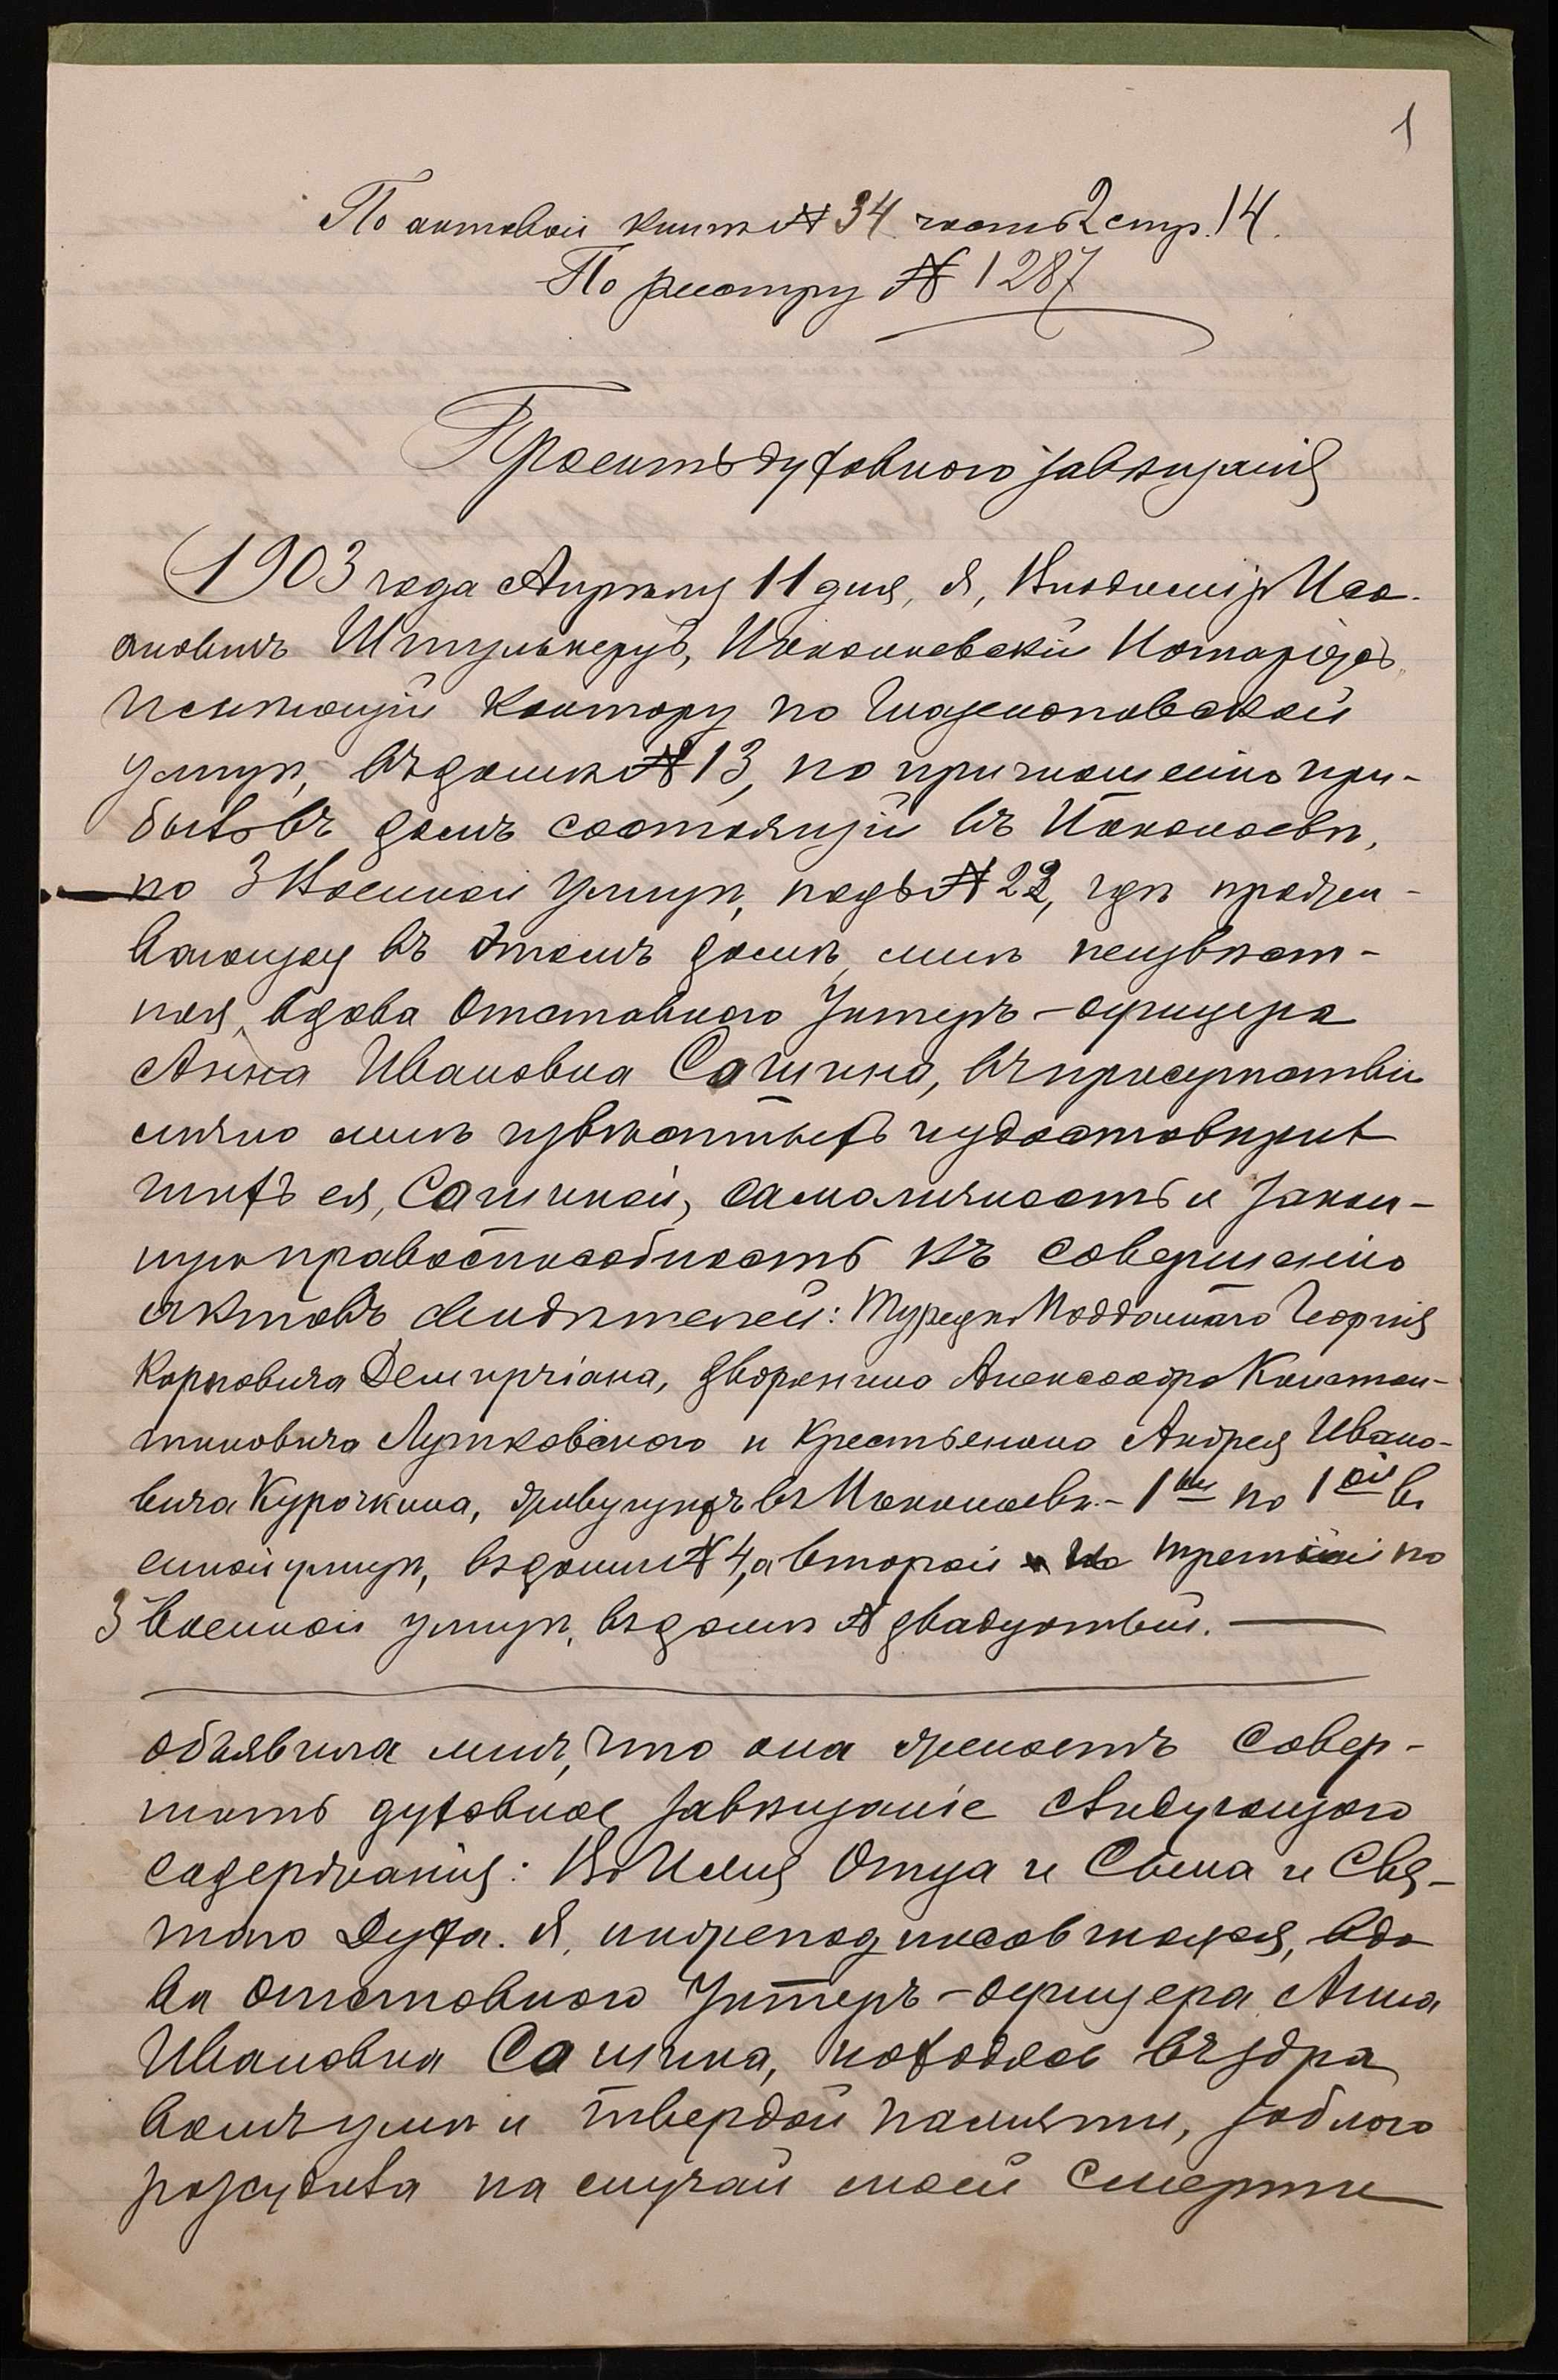 1
По актовой книгѣ № 34 часть 2 стр. 14.
По реестру № 1287
Проектъ духовного завѣщанія
1903 года Апрѣля 11 дня, я, Владиміръ Иса-
аковичъ Штульнеръ, Николаевскій Нотаріусъ,
имѣющій контору по Глазенаповской
улицѣ, въ домѣ № 13, по приглашенію при-
былъ въ домъ состоящій въ Николаевѣ,
по 3 Военной улицѣ, подъ № 22, гдѣ прожи-
вающая въ этомъ домѣ, мнѣ неизвѣст-
ная, вдова отставного Унтеръ-офицера
Анна Ивановна Сашина, въ присутствіи
лично мнѣ извѣстныхъ и удостовѣрив
шихъ ея, Сашиной, самоличность и закон-
ную правоспособность къ совершенію
актовъ свидѣтелей: Турецко Подданнаго Георгія
Карповича Демирчіана, дворянина Александра Констан-
тиновича Лутковского и крестьянина Андрея Ивано-
вича Курочкина, живущихъ въ Николаевѣ - 1ый по 1ой во
енной улицѣ, въ домѣ № 4, а второй и третій по
3 Военной улицѣ, въ домѣ № двадцатый.
объявила мнѣ, что она желаетъ совер-
шить духовное завѣщаніе слѣдующаго
содержанія: Во Имя Отца и Сына и Свя-
таго Духа. Я, нижеподписавшаяся, вдо
ва отставного Унтеръ-офицера Анна
Ивановна Сашина, находясь въ здра
вомъ умѣ и твердой памяти, заблаго
разсудила на случай моей смерти